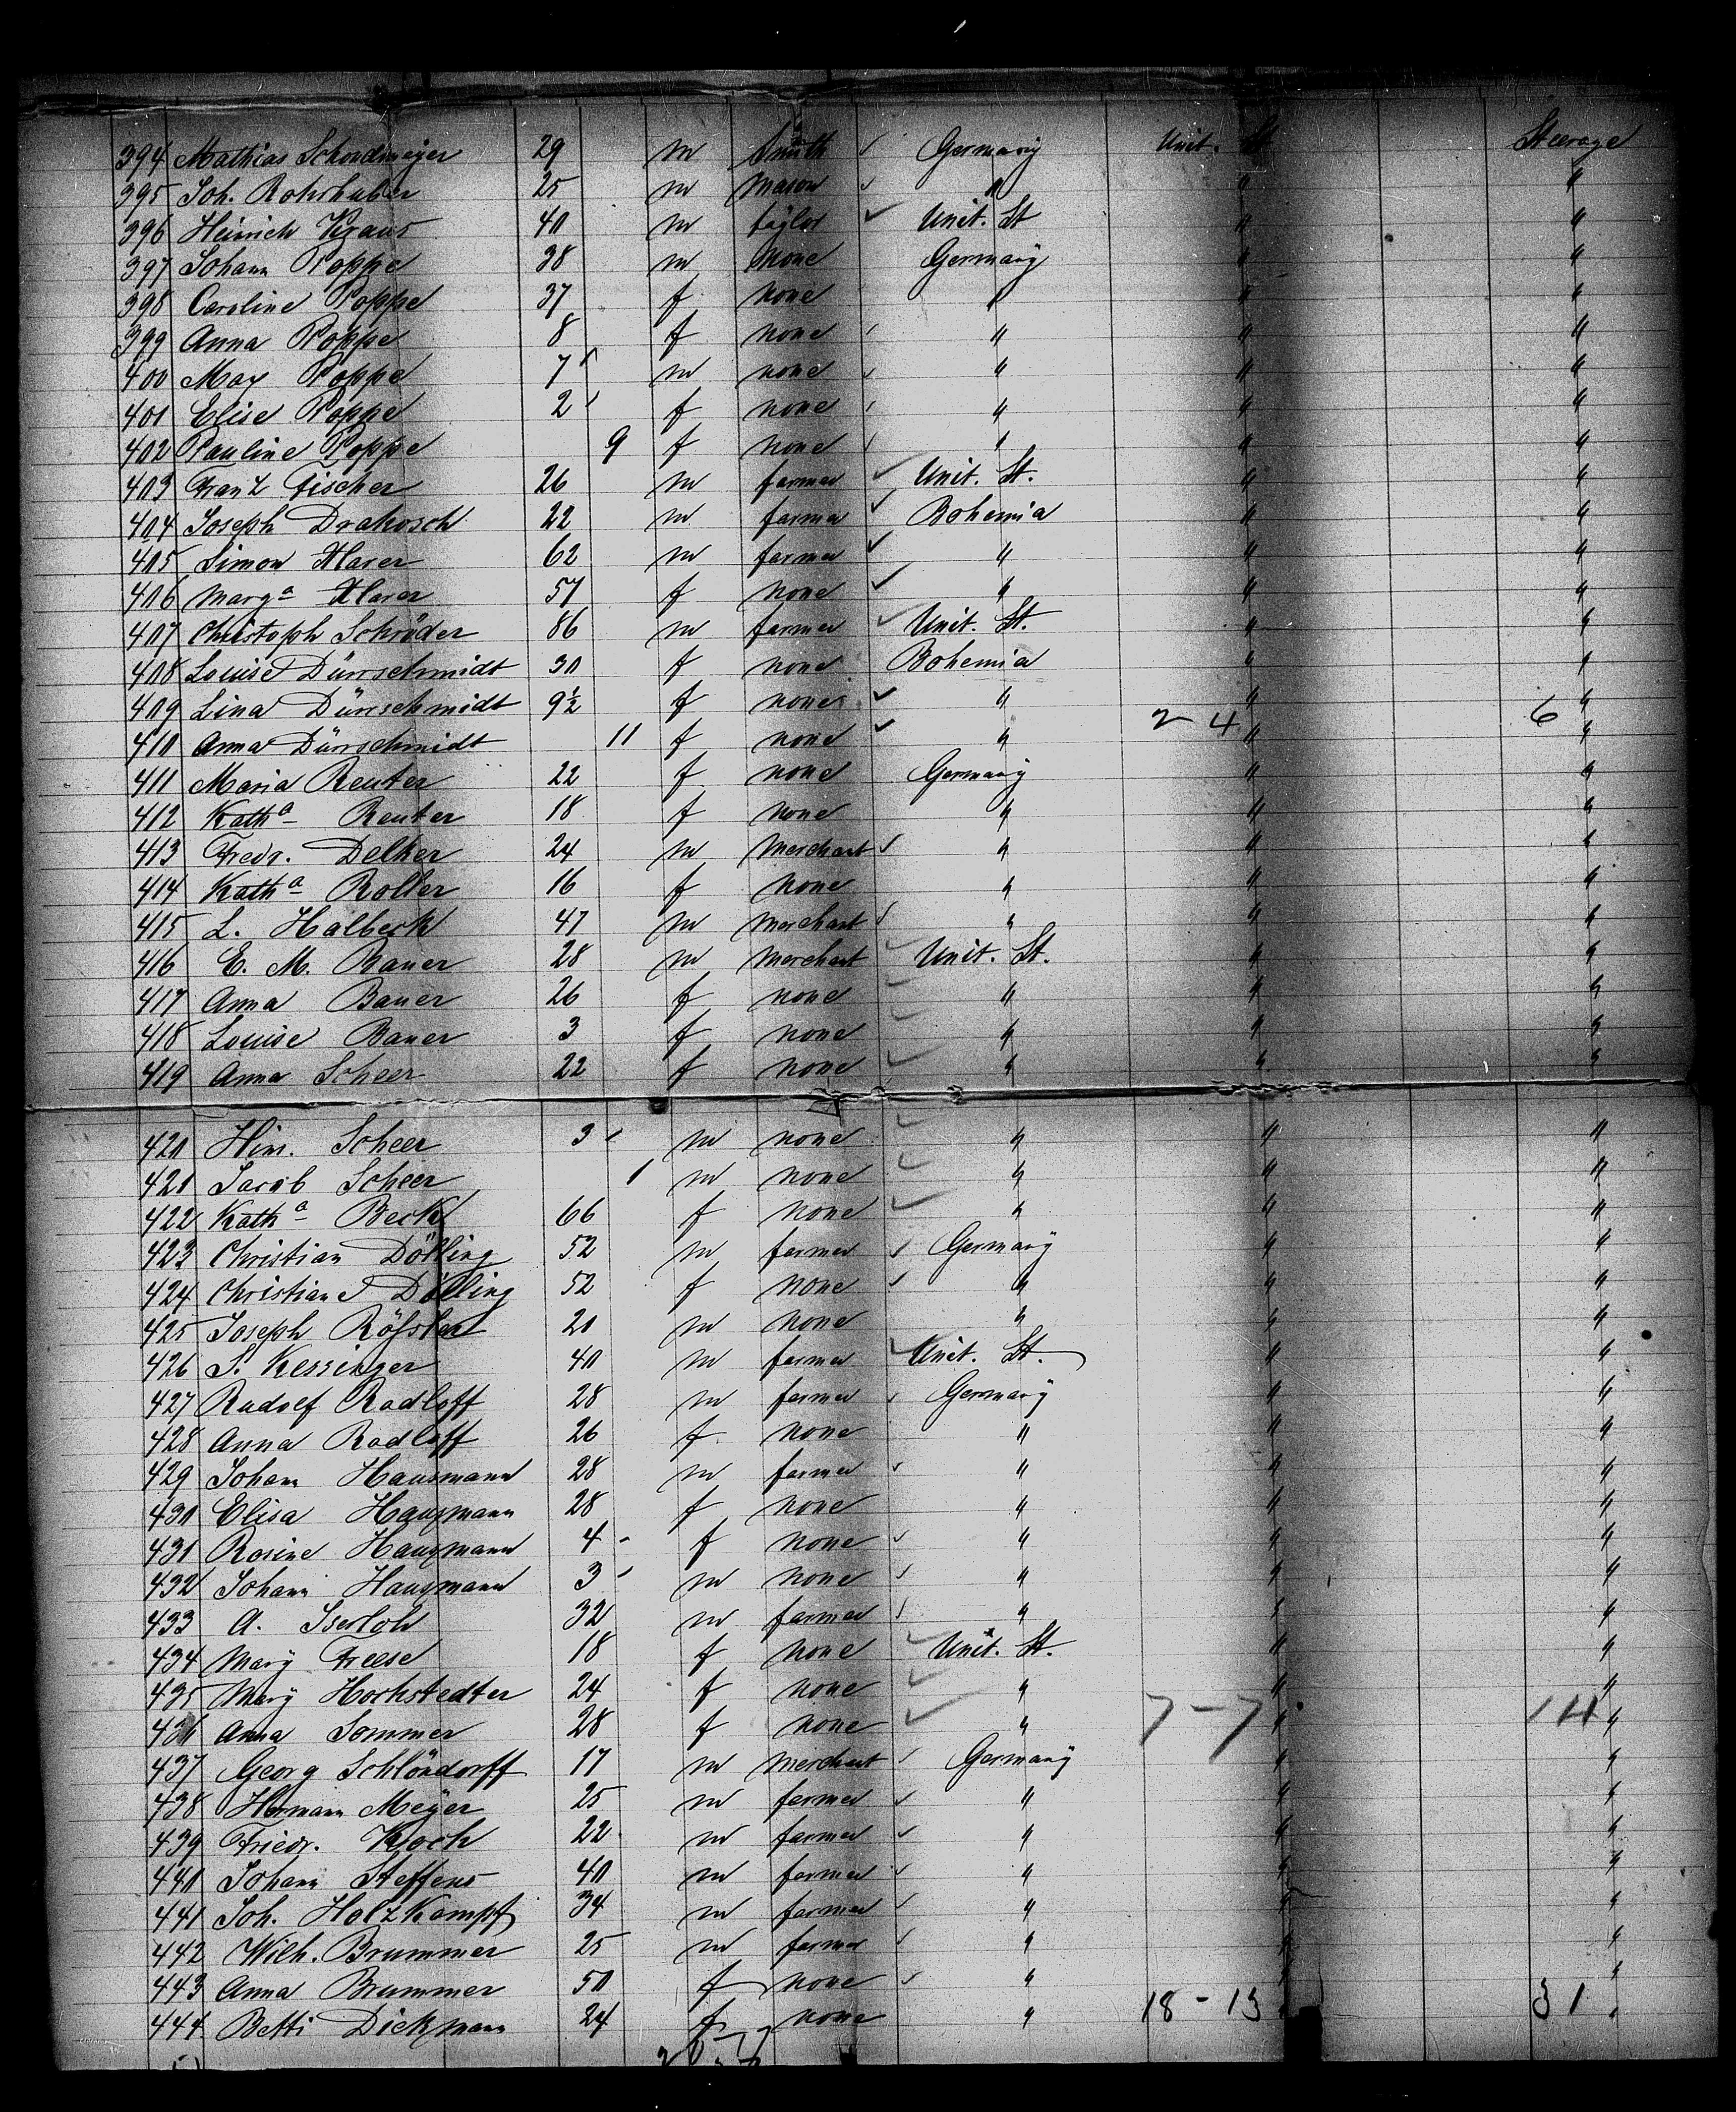 394 Mathias Schondmeyer 29 m Smith Germany Unit. St Steerage
395 Joh. Rohrhuber 25 m mason " " "
396 Heinrich Kraus 40 m taylor Unit. St " "
397 Johann Poppe 38 m none Germany " "
398 Caroline Poppe 37 f none " " "
399 Anna Poppe 8 f none " " "
400 Max Poppe 7 m none " " "
401 Elise Poppe 2 f none " " "
402 Pauline Poppe 9 f none " " "
403 Franz Fischer 26 m farmer Unit. St. " "
404 Joseph Drahosch 22 m farmer Bohemia " "
405 Simon Harer 62 m farmer " " "
406 Marga Harer 57 f none " " "
407 Christoph Schröder 86 m farmer Unit. St. " "
408 Louise Dürrschmidt 30 f none Bohemia " "
409 Lina Dürrschmidt 9½ f none " " "
410 Anna Dürrschmidt 11 f none " 2-4 " 6 "
411 Maria Reuter 22 f none Germany " "
412 Katha Reuter 18 f none " " "
413 Fredr. Delker 24 m Merchant " " "
414 Katha Roller 16 f none " " "
415 L. Halbeck 47 m merchant " " "
416 E. M. Bauer 28 m merchant Unit. St. " "
417 Anna Bauer 26 f none " " "
418 Louise Bauer 3 f none " " "
419 Anna Scheer 22 f none " " "
420 Hinr. Scheer 3 m none " " "
421 Jacob Scheer 1 m none " " "
422 Katha Beck 66 f none " " "
423 Christian Dölling 52 m farmer Germany " "
424 Christiane Dölling 52 f none " " "
425 Joseph Rößler 20 m none " " "
426 S. Kessinger 40 m farmer Unit. St. " "
427 Rudolf Radloff 28 m farmer Germany " "
428 Anna Radloff 26 f none " " "
429 Johann Hausmann 28 m farmer " " "
430 Elisa Hausmann 28 f none " " "
431 Rosine Hausmann 4 f none " " "
432 Johann Hausmann 3 m none " " "
433 A. Iserloh 32 m farmer " " "
434 Mary Freese 18 f none Unit. St. " "
435 Mary Hochstedter 24 f none " " "
436 Anna Sommer 28 f none " 7-7 " 14 "
437 Georg Schlöndorff 17 m merchant Germany " "
438 Hermann Meyer 25 m farmer " " "
439 Friedr. Koch 22 m farmer " " "
440 Johann Steffens 40 m farmer " " "
441 Joh. Holzkampf 34 m farmer " " "
442 Wilh. Brummer 25 m farmer " " "
443 Anna Brummer 50 f none " " "
444 Betti Dickmann 24 f none " 18-13 " 31 "